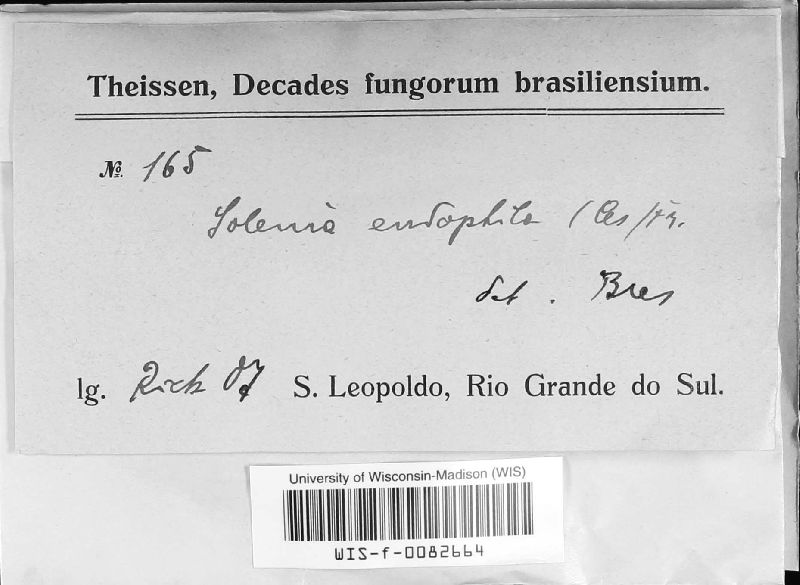 Theissen, Decades fungorum brasiliensium.
№ 165
Solenia endophila (Ces) Fr.
det. Bres
lg. Rick 07 S. Leopoldo, Rio Grande do Sul.
University of Wisconsin-Madison (WIS)
WIS-f-0082664